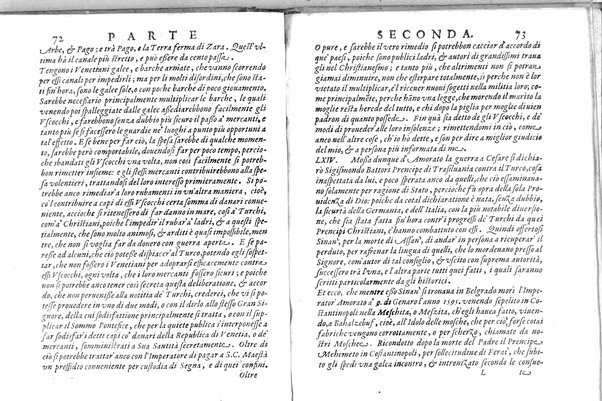 72 PARTE
Arbe, & Pago; e trà Pago, e la Terra ferma di Zara. Quest'vl
tima hà il canale più stretto, e può essere da cento passa.
Tengono i Venetiani galee, e barche armate, che vanno scorrendo
per essi canali per impedirli; ma per li molti disordini, che sono sta
ti fin'hora, sono le galee sole, o con poche barche di poco giouamento.
Sarebbe necessario principalmente multiplicar le barche, le quali
venendo poi spalleggiate dalle galee assediarebbono facilmente gli
Vscocchi, e sarebbono senza dubbio più sicuro il passo a' mercanti, e
tanto più se si facessero le guardie ne' luoghi a punto più opportuni a
tal'effetto. E se bene per far ciò, la spesa sarebbe di qualche momen-
to, sarebbe però comportabile, douendosi fare per poco tempo, per-
che sbandati gli Vscocchi vna volta, non così facilmente si potreb-
bon rimetter insieme: e gli stessi mercanti contribuirebbono alla spe-
sa volentieri, trattandosi del loro interesso primieramente. Si potreb-
be anco rimediar'a loro rubamenti in vn'altra maniera, cioè,
co'l contribuire a capi di essi Vscocchi certa somma di danari conue-
niente, accioche si contentassero di far danno in mare, così a' Turchi,
com'a' Christiani, poiche l'impedir'il rubar'a ladri, & a questi spetial-
mente, che sono molto animosi, & arditi è quasi impossibile, men-
tre, che non si voglia far da douero con guerra aperta. E se pa-
resse ad alcuni, che ciò potesse dispiacer'al Turco, potendo egli sospet-
tar, che non fossero i Venetiani per adoprarsi efficacemente contra
essi Vscocchi, ogni volta, che i loro mercanti fossero sicuri; dico, che
si potrebbe anco tener così secreta questa deliberatione, & accor
do, che non peruenisse alla notitia de' Turchi, credersi, che vi si po-
tesse prouedere in vno di due modi, o con il dirlo allo stesso Gran Si-
gnore, della cui sodisfattione principalmente si tratta, o con il sup-
plicar il Sommo Pontefice, che per la quiete publica s'interponesse a
far sodisfar'i detti capi co' denari della Republica di Venetia, o de'
mercanti, somministrati a Sua Santità secretamente. Oltre di
ciò si potrebbe trattar'anco con l'Imperatore di pagar a S. C. Maestà
vn presidio conueniente per custodia di Segna, e di quei confini.
Oltre
SECONDA. 73
O pure, e sarebbe il vero rimedio si potrebbon cacciar d'accordo di
que' paesi, poiche sono publici ladri, & autori di grandissimi traua
gli nel Christianesimo; e tanto più, che altrimenti non si potran-
giamai diminuire, non che estirpar totalmente, ʃi perche è lor
vietato il multiplicar, e'l riceuer nuoui sogetti nella militia loro; co-
me principalmẽte, perche hãno vna legge, che morendo il marito la
moglie resta herede del tutto, e chi dopo la piglia per moglie diuien
padron di quanto possede. Fin quà sia detto de gli Vscocchi, e de'
modi di proueder'alle loro insolenze; rimettendomi in ciò, come
anco nell'altre cose, ch'io hò detto, e son per dire a miglior giudicio
del mio, & a persona più informata di me.
LXIV. Mossa dunque d'Amorato la guerra a Cesare si dichia-
rò Sigismondo Battori Prencipe di Trasiluania contra il Turco, cosa
inaspettata da lui, e poco sperata anco da quelli, che ciò essaminaua-
no solamente per ragione di Stato, percioche fù opra della sola Pro
uidenza di Dio; poiche da cotal dichiaratione è nata, senza dubbio,
la sicurtà della Germania, e dell'Italia, con la più notabile diuersio-
ne, che sia stata fatta fin'hora contr'i progressi de' Turchi da quei
Prencipi Christiani, c'hanno combattuto con essi. Quindi offertosi
Sinan', per la morte di Assan', di andar'in persona a ricuperar il
perduto, per rasfrenar la lingua di quelli, che lo mordeuano presso al
Signore, com'autor di tal consiglio, & vscito con suprema autorità,
successero trà l'vna, e l'altra parte tutti quei fatti, i quali saranno
scritti particolarmente da gli historici.
Et ecco, che mentre esso Sinan si trouaua in Belgrado morì l'Impe-
rator' Amorato a' 9. di Genaro l'anno 1595. venendo sepelito in Co-
stantinopoli nella Meschita, o Mesẑita, ch'egli hauea fatto, viuen-
do, e